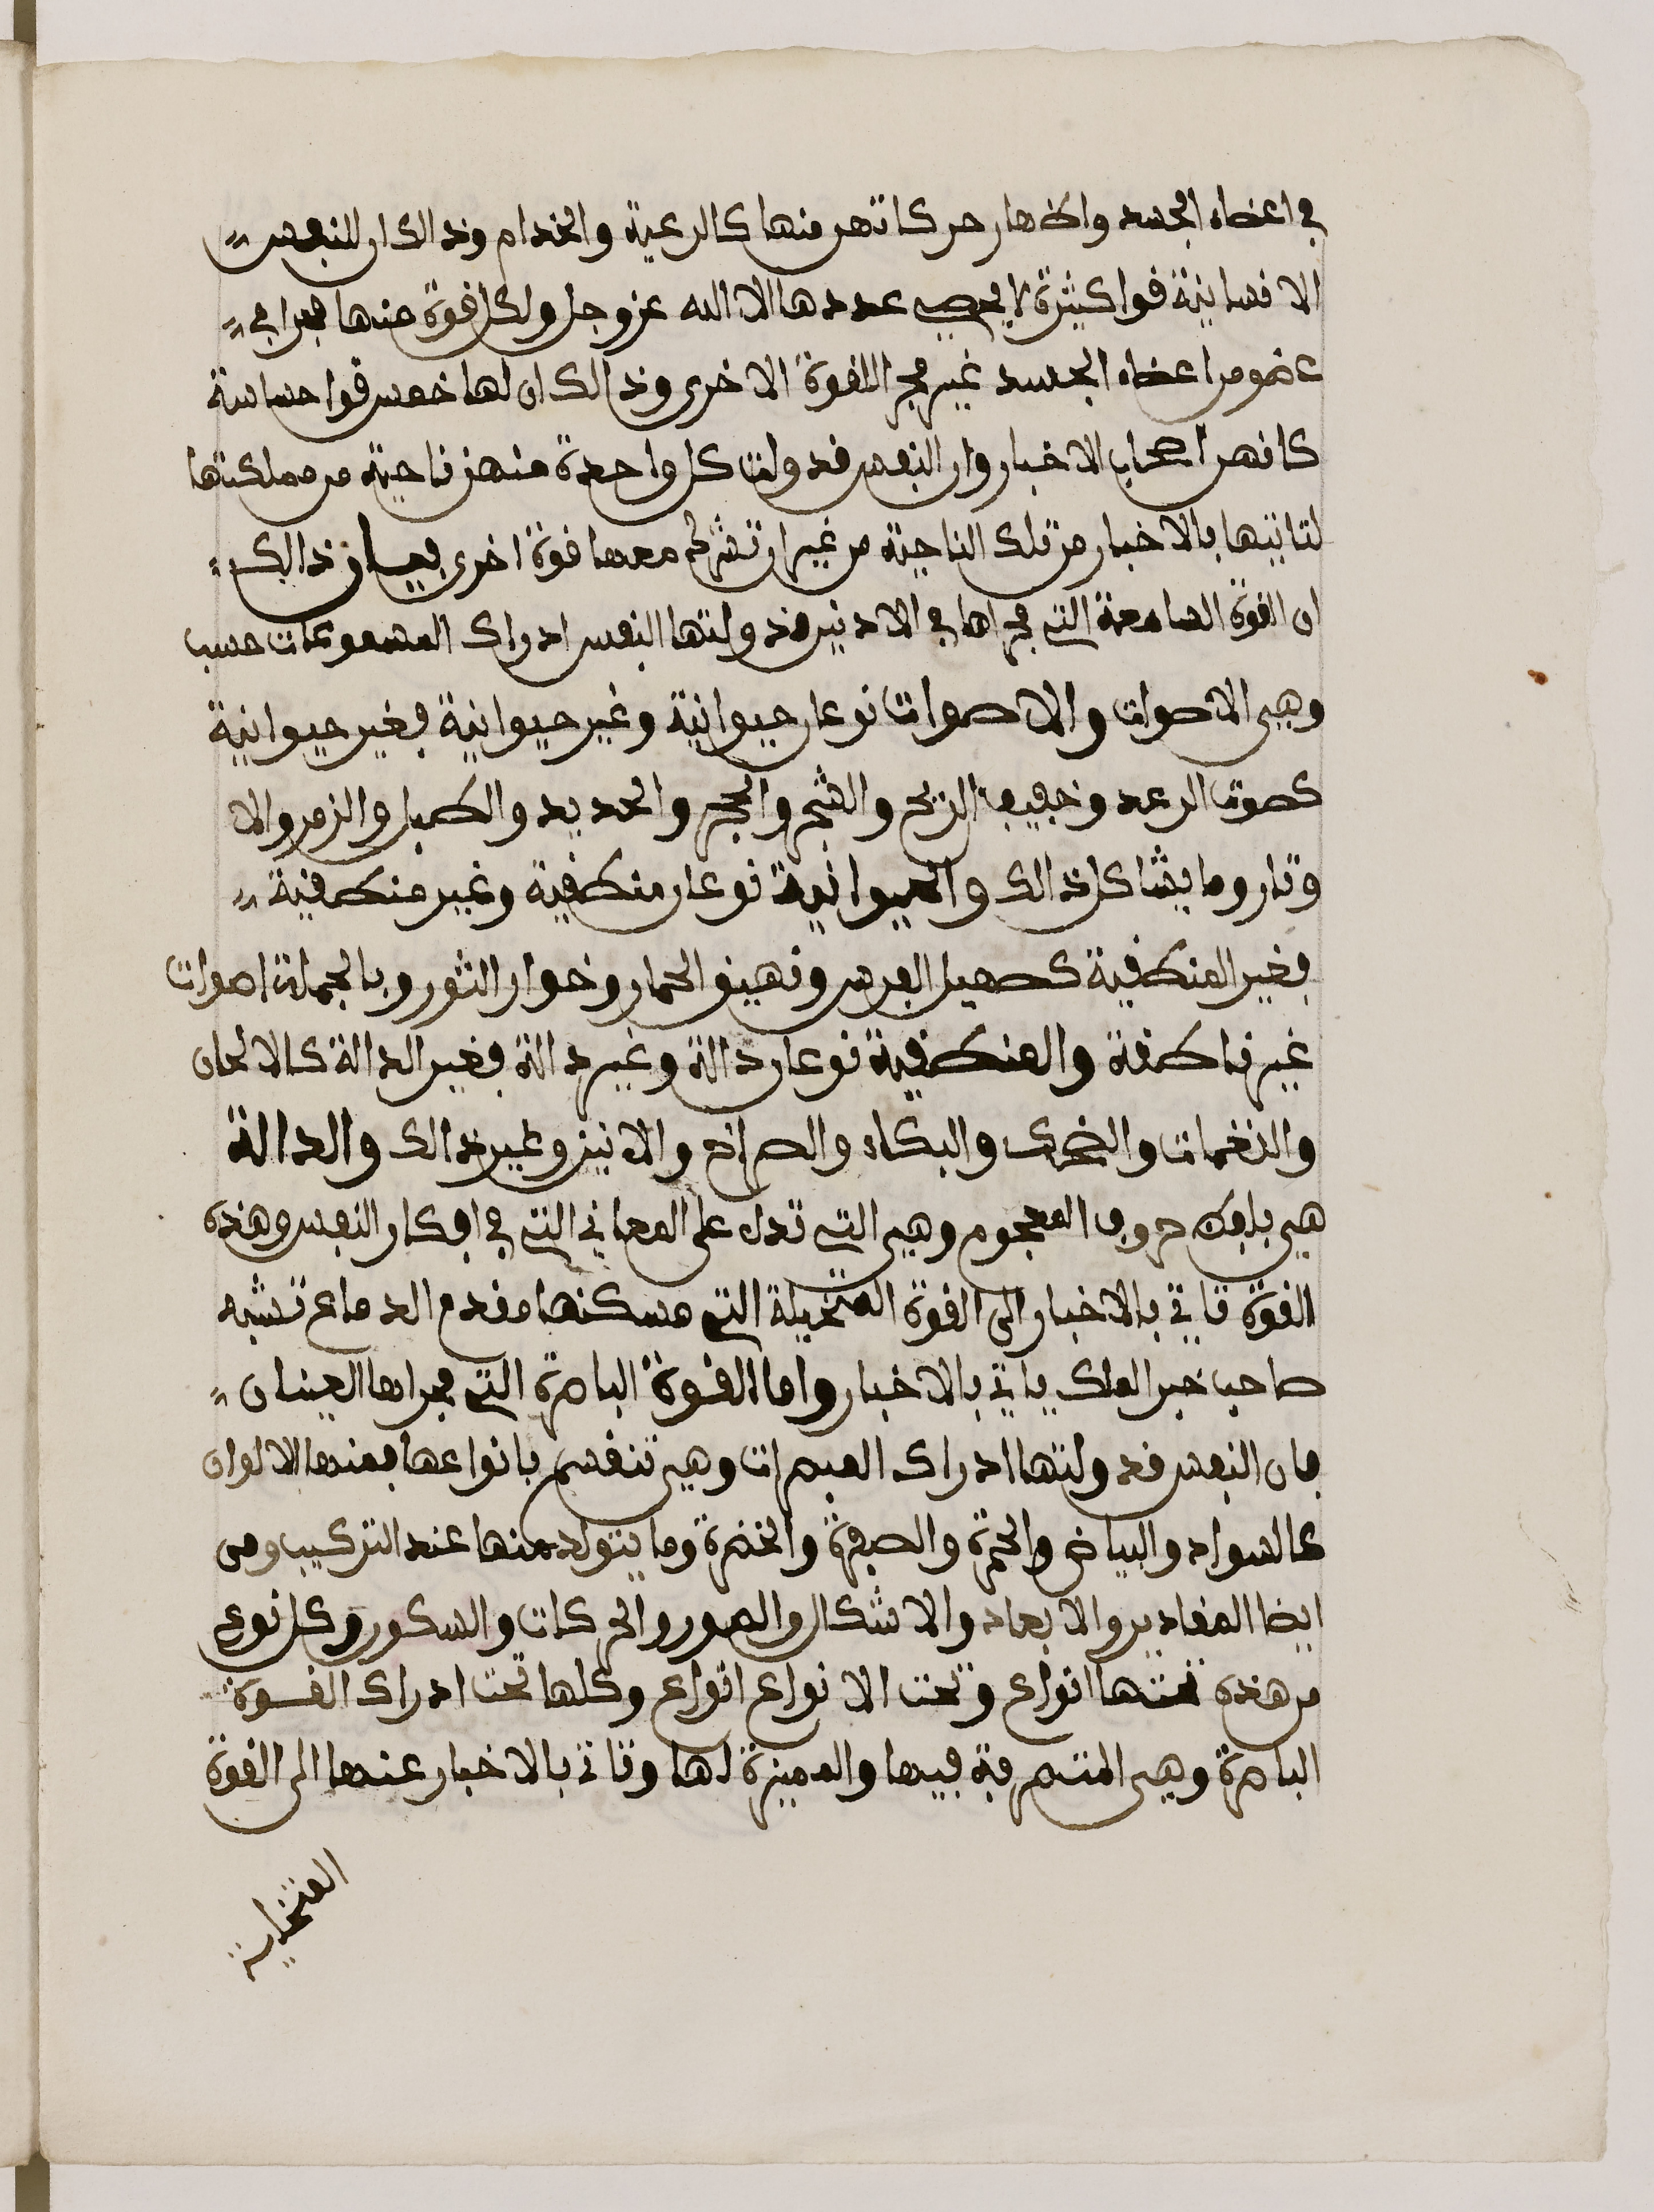 في اعضاء الجسد واظهار حركاتهن منها كالرعية والخدام وذالك ان للنفس
الانسانية قوا كثيرة لا يحصي عددها الا الله عز وجل ولكل قوة منها مجرا في
عضو من اعضاء الجسد غير مجرا القوة الاخرى وذالك ان لها خمس قوا حساسة
كانهن اصحاب الاخبار وان النفس قد ولت كل واحدة منهن ناحية من مملكتها
لتاتيها بالاخبار من تلك الناحية من غير ان تشرك معها قوة اخرى بيان ذالك
ان القوة السامعة التي مجراها في الاذنين قد ولتها النفس ادراك المسموعات حسب
وهي الاصوات والاصوات نوعان حيوانية وغير حيوانية فغير حيوانية
كصوت الرعد وخفيف الريح والشجر والحجر والحديد والطبل والزمر والا
وتار وما يشاكل ذالك والحيوانية نوعان منطقية وغير منطقية
فغير المنطقية كصهيل الفرس ونهيق الحمار وخوار الثور وبالجملة اصوات
غير ناطقة والمنطقية نوعان دالة وغير دالة فغير الدالة كالالحان
والنغمات والضحك والبكاء والصراخ والانين وغير ذالك والدالة
هي بلفظ حروف المعجوم وهي التي تدل على المعاني التي في افكار النفس وهذه
القوة تاتي بالاخبار الى القوة المتخيلة التي مسكنها مقدم الدماغ تشبه
صاحب خبر الملك ياتي بالاخبار واما القوة الباصرة التي مجراها العينان
فان النفس قد ولتها ادراك المبصرات وهي تنقسم بانواعها فمنها الالوان
كالسواد والبياض والحمرة والصفرة والخضرة وما يتولد منها عند التركيب ومن
ايضا المقادير والابعاد والاشكال والصور والحركات والسكون وكل نوع
من هذه تحتها انواع وتحت الانواع انواع وكلها تحت ادراك القوة
الباصرة وهي المتصرفة فيها والمميزة لها وتاتي بالاخبار عندها الى القوة
المتخيلة